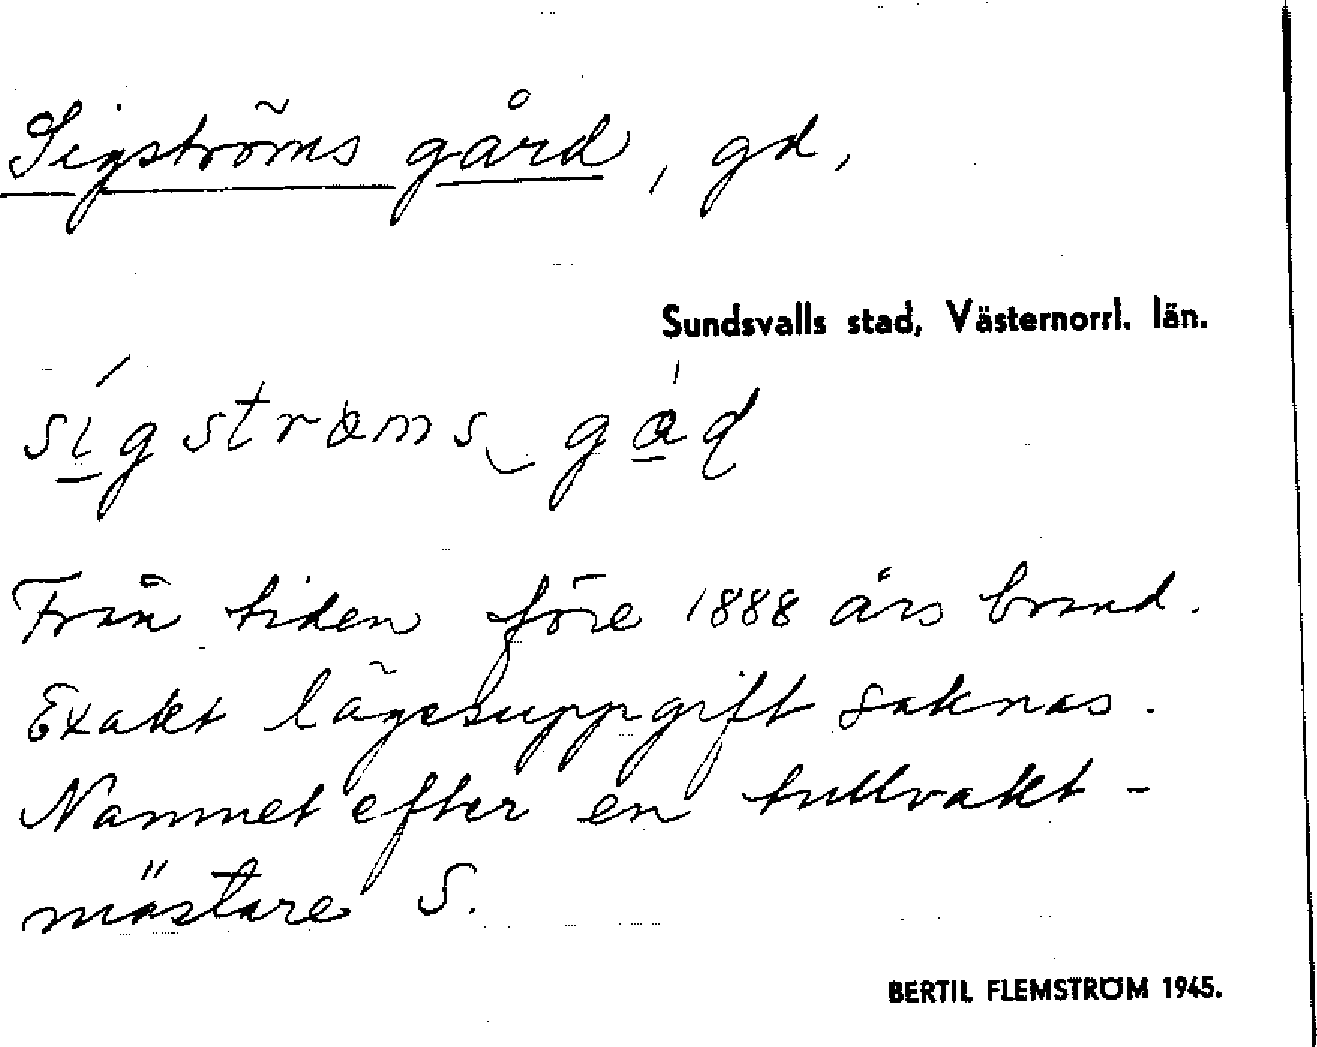 Sigströms gård, gd,
Sundsvalls stad, Västernorrl. län.
sígstrɷms‿gɑ́ɖ
Från tiden före 1888 års brand.
Exakt lägesuppgift saknas.
Namnet efter en tullvakt-
mästare S.
BERTIL FLEMSTRÖM 1945.